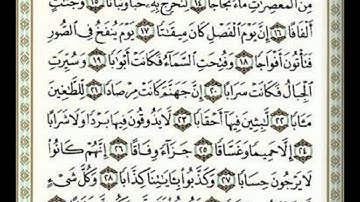 مِنَ ٱلْمُعْصِرَٰتِ مَآءً ثَجَّاجًا ١٤ لِّنُخْرِجَ بِهِۦ حَبًّا وَنَبَاتًا ١٥ وَجَنَّٰتٍ
أَلْفَافًا ١٦ إِنَّ يَوْمَ ٱلْفَصْلِ كَانَ مِيقَٰتًا ١٧ يَوْمَ يُنفَخُ فِى ٱلصُّورِ
فَتَأْتُونَ أَفْوَاجًا ١٨ وَفُتِحَتِ ٱلسَّمَآءُ فَكَانَتْ أَبْوَٰبًا ١٩ وَسُيِّرَتِ
ٱلْجِبَالُ فَكَانَتْ سَرَابًا ٢٠ إِنَّ جَهَنَّمَ كَانَتْ مِرْصَادًا ٢١ لِّلطَّٰغِينَ
مَـَٔابًا ٢٢ لَّٰبِثِينَ فِيهَآ أَحْقَابًا ٢٣ لَّا يَذُوقُونَ فِيهَا بَرْدًا وَلَا شَرَابًا
٢٤ إِلَّا حَمِيمًا وَغَسَّاقًا ٢٥ جَزَآءً وِفَاقًا ٢٦ إِنَّهُمْ كَانُوا۟
لَا يَرْجُونَ حِسَابًا ٢٧ وَكَذَّبُوا۟ بِـَٔايَٰتِنَا كِذَّابًا ٢٨ وَكُلَّ شَىْءٍ